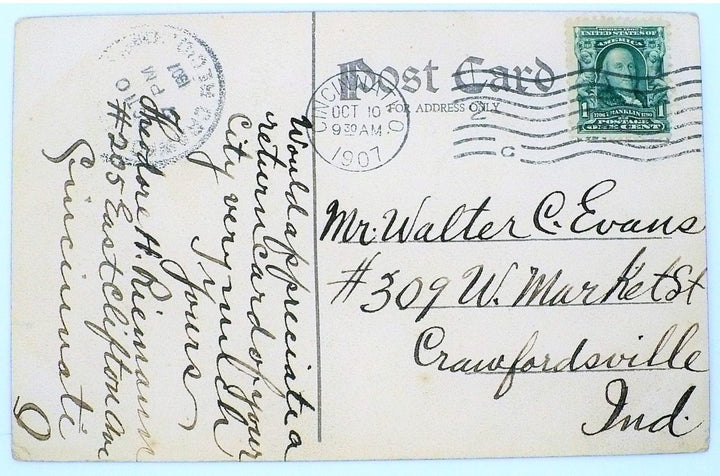 Post Card
FOR ADDRESS ONLY
UNITED STATES OF AMERICA
1 FRANKLIN 1
POSTAGE
ONE CENT
CINCINNATI, O
OCT 10
9 30 AM
1907
2
C
REC'D
PM
1907
Mr. Walter C. Evans
#309 W. Market St
Crawfordsville
Ind.
Would appreciate a
return card of your
City very much
Yours
Theodore H. Riemann
#225 East Clifton Ave
Cincinnati
O